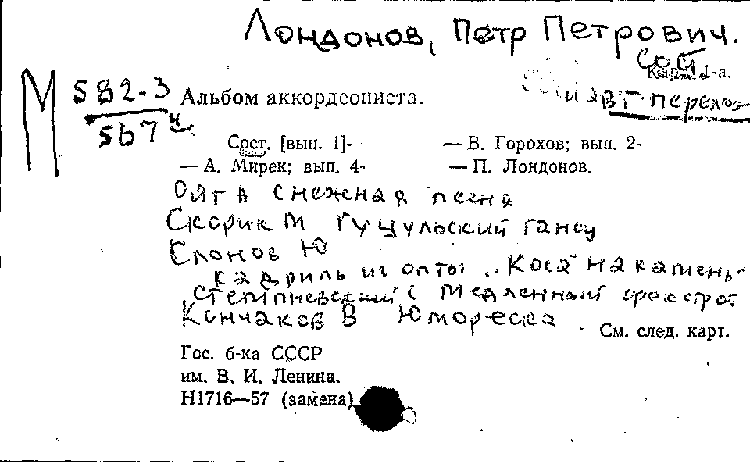 Лондонов, Петр Петрович.
сост.
и авт. перелож
М 582-3 Альбом аккордеониста.
567
Сост. [вып. 1]- — В. Горохов; вып. 2-
— А. Мирек; вып. 4- — П. Лондонов.
снежная песня
Скорик М Гуцульский танец
Слонов Ю
кадриль из оп-ты „Коса на камень"
С Медленный фокстрот
Кончаков В Юмореска
См. след. карт.
Гос. б-ка СССР
им. В. И. Ленина.
Н1716—57 (замена)